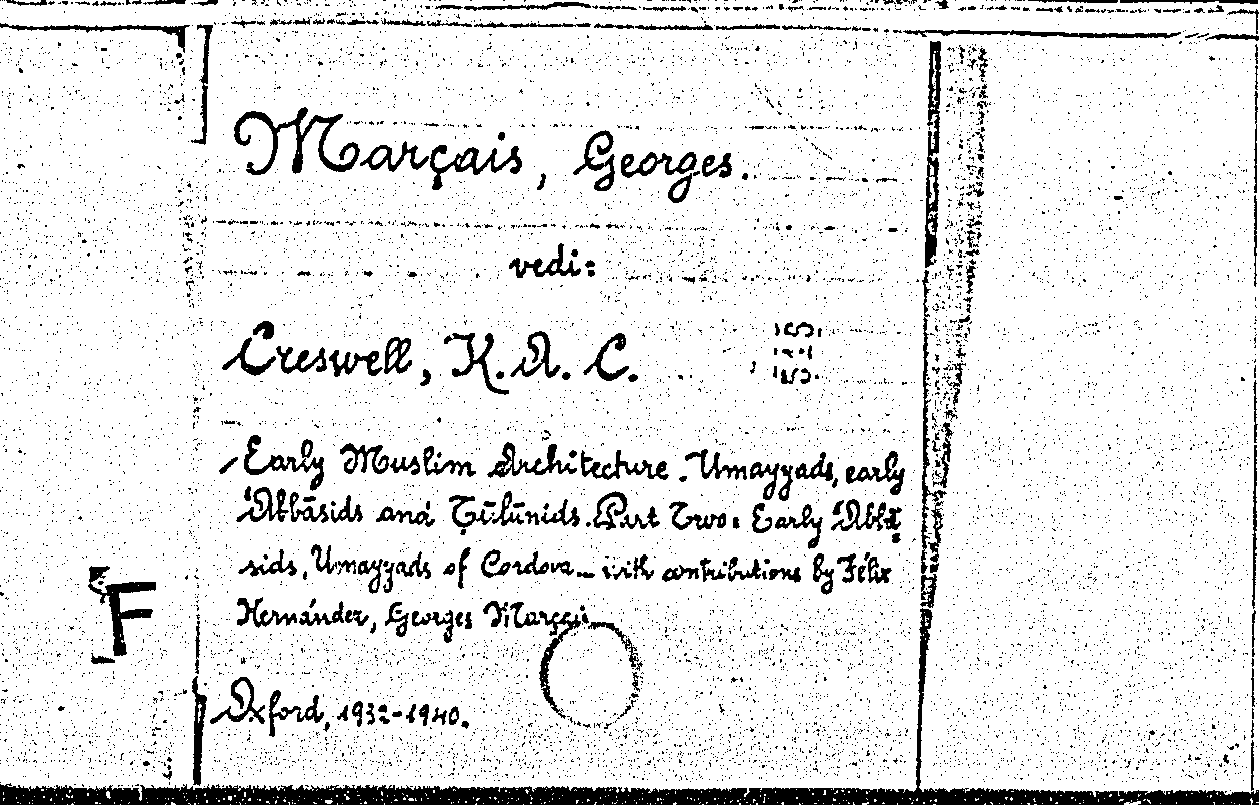 Marçais, Georges.
vedi:
Creswell, K. A. C.
Early Muslim Architecture. Umayyads, early
'Abbāsids and Ṭūlūnids. Part Two: Early 'Abbā=
sids, Umayyads of Cordova_ with contributions by Félix
Hernández, Georges Marçais_
F
Oxford, 1932-1940.